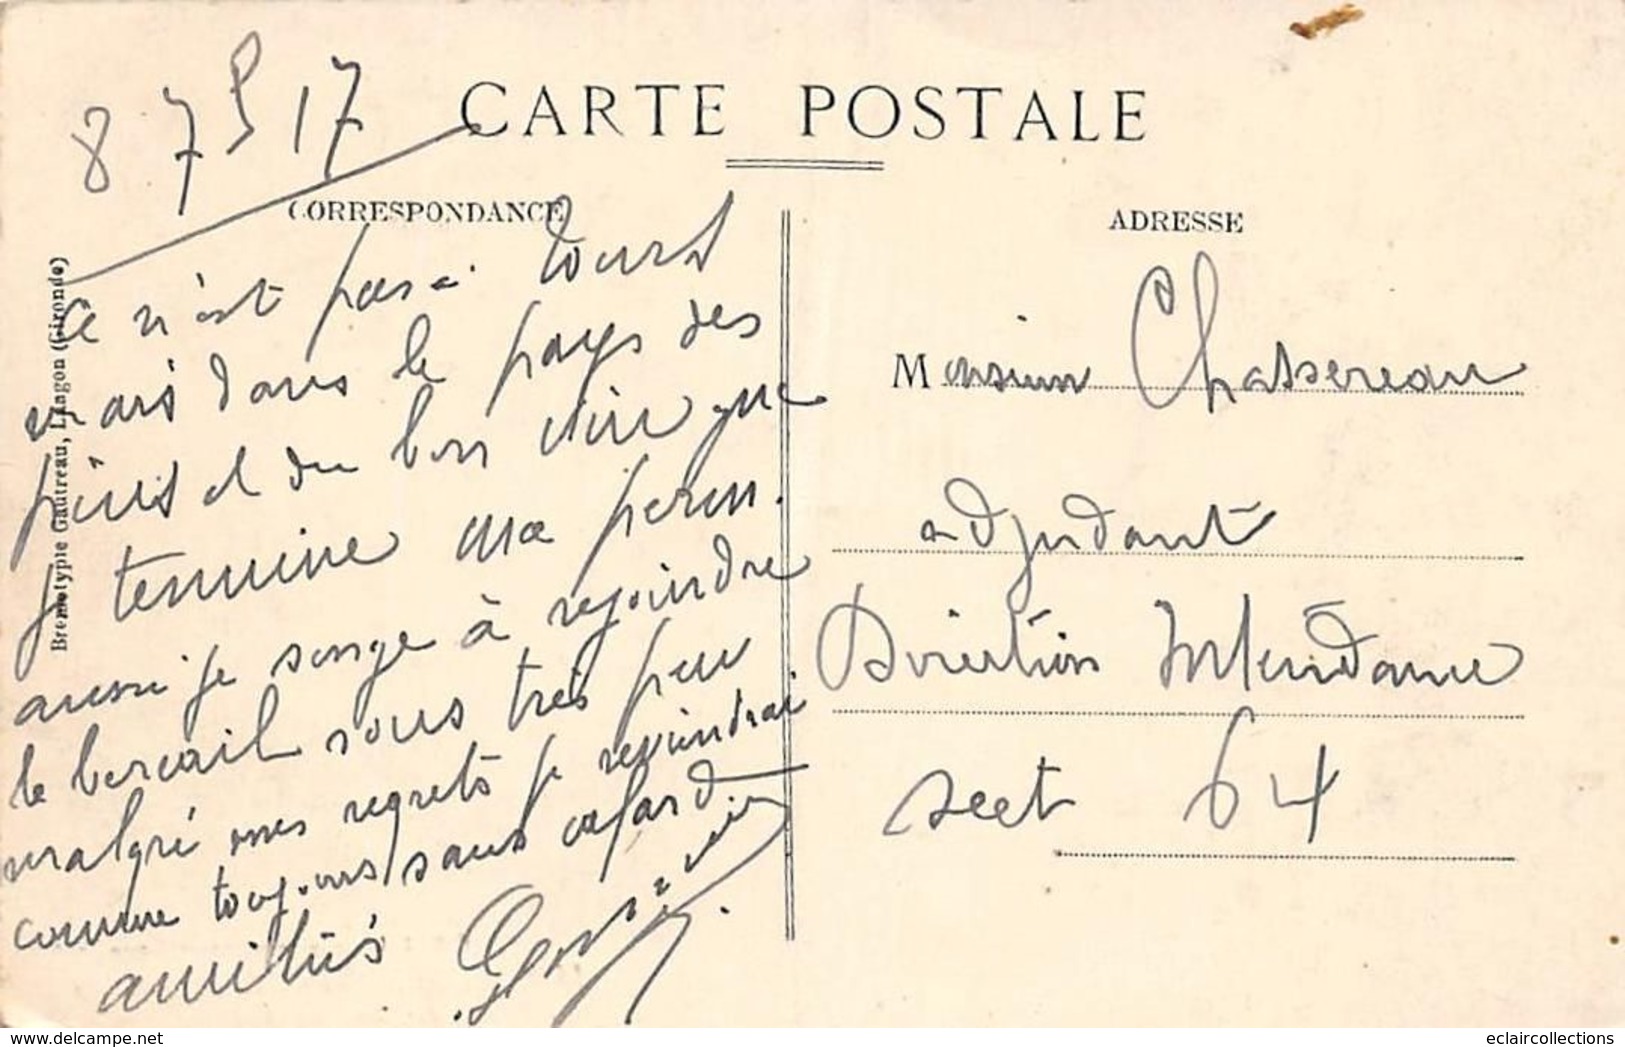 8 7bre 17
CARTE POSTALE
CORRESPONDANCE
ADRESSE
Bromotypie Gautreau, Langon (Gironde)
Ce n'est pas à Tours
mais dans le pays des
pins et du bon vin que
je termine ma perm.
aussi je songe à rejoindre
le bercail sous très peu
malgré mes regrets je rejoindrai
comme toujours sans cafard
amitiés
Monsieur Chassereau
adjudant
Direction Intendance
sect 64
delcampe.net
eclaircollections